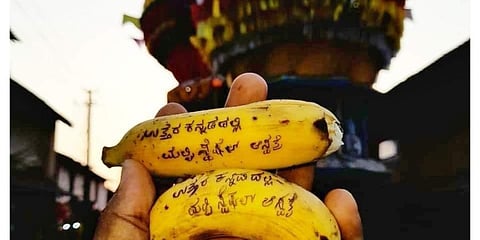 ಉತ್ತರ ಕನ್ನಡದಲ್ಲಿ
ಮಲ್ಟಿ ಸ್ಪೆಷಲ್ ಆಸ್ಪತ್ರೆ
ಉತ್ತರ ಕನ್ನಡದಲ್ಲಿ
ಮಲ್ಟಿ ಸ್ಪೆಷಲ್ ಆಸ್ಪತ್ರೆ